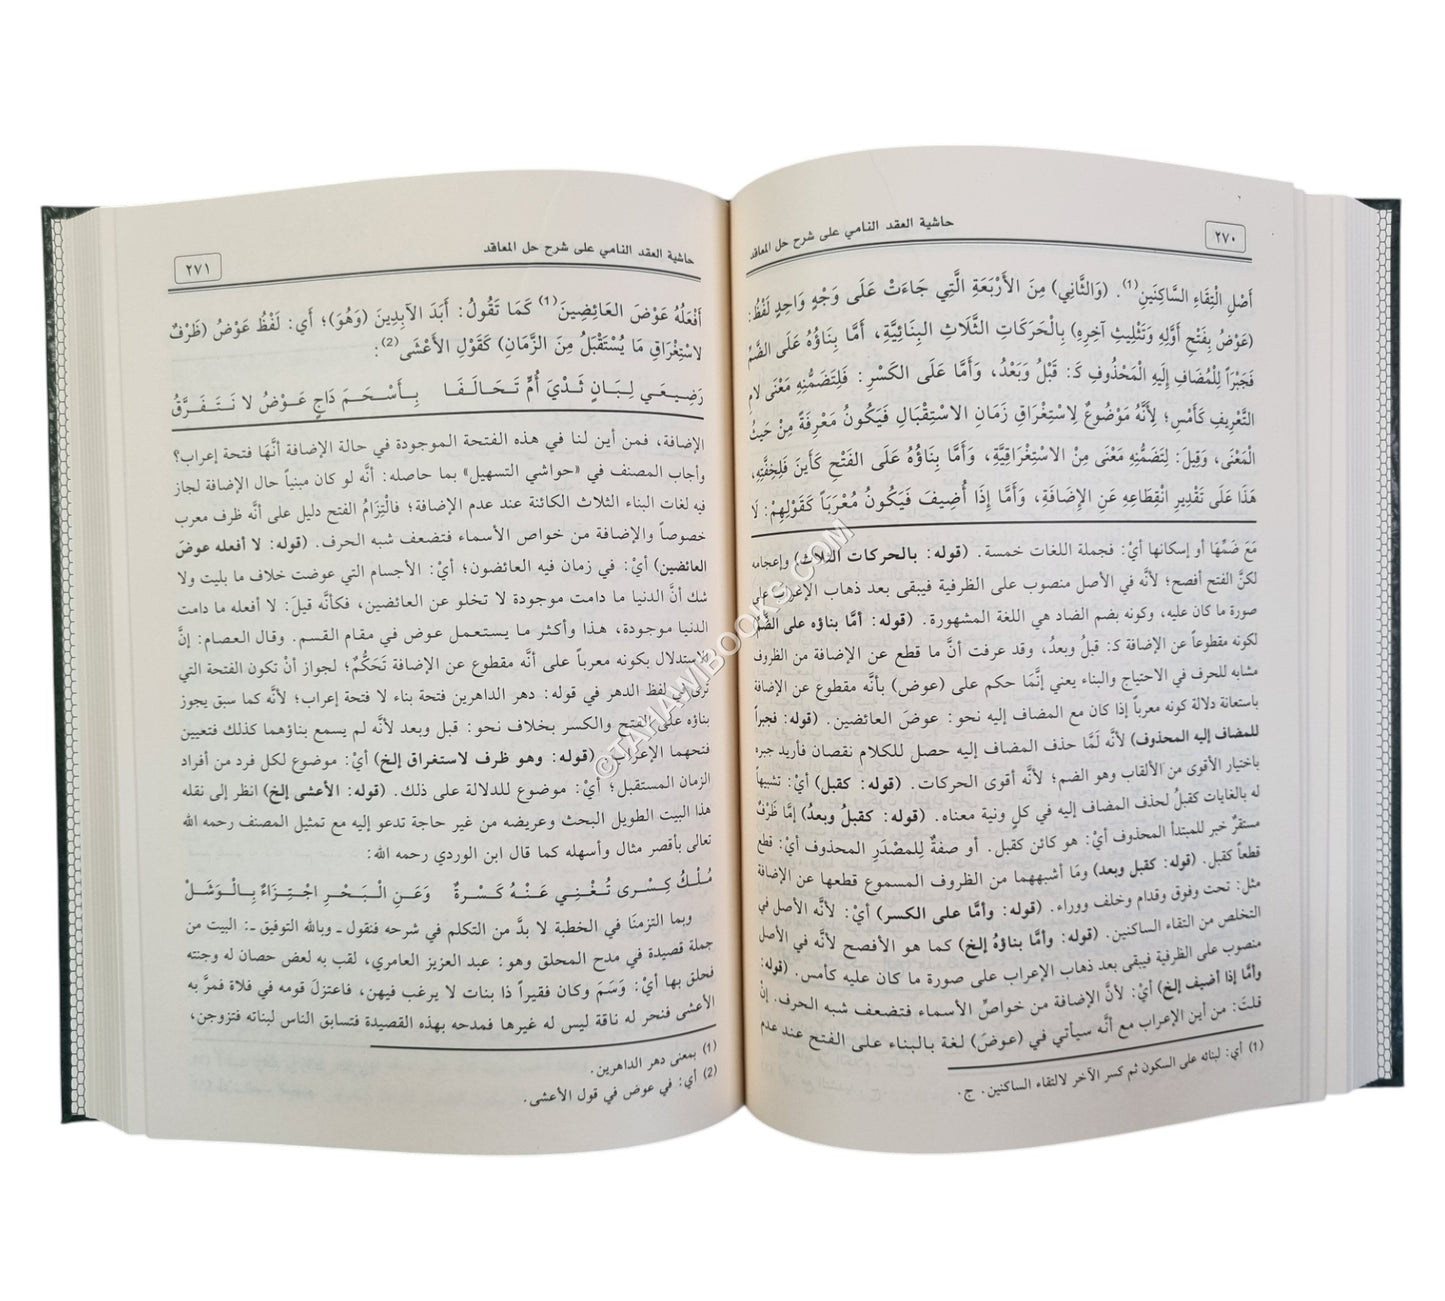 ٢٧٠
حاشية العقد النامي على شرح حل المعاقد
أَصْلِ الْتِقَاءِ السَّاكِنَينِ(1). (وَالثَّانِي) مِنَ الأَرْبَعَةِ الَّتِي جَاءَتْ عَلَى وَجْهٍ وَاحِدٍ لَفْظُ:
(عَوْضُ بِفَتْحِ أَوَّلِهِ وَتَثْلِيثِ آخِرِهِ) بِالْحَرَكَاتِ الثَّلَاثِ البِنَائِيَّةِ، أَمَّا بِنَاؤُهُ عَلَى الضَّمِّ
فَجَبْراً لِلْمُضَافِ إِلَيهِ الْمَحْذُوفِ كَـ: قَبْلُ وَبَعْدُ، وَأَمَّا عَلَى الكَسْرِ: فَلِتَضَمُّنِهِ مَعْنَى لَامِ
التَّعْرِيفِ كَأَمْسِ؛ لِأَنَّهُ مَوْضُوعٌ لِاسْتِغْرَاقِ زَمَانِ الاسْتِقْبَالِ فَيَكُونُ مَعْرِفَةً مِنْ حَيثُ
الْمَعْنَى، وَقِيلَ: لِتَضَمُّنِهِ مَعْنَى مِنْ الاسْتِغْرَاقِيَّةِ، وَأَمَّا بِنَاؤُهُ عَلَى الفَتْحِ كَأَينَ فَلِخِفَّتِهِ،
هَذَا عَلَى تَقْدِيرِ انْقِطَاعِهِ عَنِ الإِضَافَةِ، وَأَمَّا إِذَا أُضِيفَ فَيَكُونُ مُعْرَباً كَقَوْلِهِمْ: لَا
مَعَ ضَمِّهَا أو إسكانها أيْ: فجملة اللغات خمسة. (قوله: بالحركات الثلاث) وإعجامه
لكنَّ الفتح أفصح؛ لأنَّه في الأصل منصوب على الظرفية فيبقى بعد ذهاب الإعراب على
صورة ما كان عليه، وكونه بضم الضاد هي اللغة المشهورة. (قوله: أمَّا بناؤه على الضَّمِّ
لكونه مقطوعاً عن الإضافة كـ: قبلُ وبعدُ، وقد عرفت أنَّ ما قطع عن الإضافة من الظروف
مشابه للحرف في الاحتياج والبناء يعني إنَّمَا حكم على (عوض) بأنَّه مقطوع عن الإضافة
باستعانة دلالة كونه معرباً إذا كان مع المضاف إليه نحو: عوضَ العائضين. (قوله: فجبراً
للمضاف إليه المحذوف) لأنَّه لَمَّا حذف المضاف إليه حصل للكلام نقصان فأريد جبره
باختيار الأقوى من الألقاب وهو الضم؛ لأنَّه أقوى الحركات. (قوله: كقبل) أيْ: تشبيهاً
له بالغايات كقبلُ لحذف المضاف إليه في كلٍ ونية معناه. (قوله: كقبلُ وبعدُ) إمَّا ظَرْفٌ
مستقرٌ خبر للمبتدأ المحذوف أيْ: هو كائن كقبل. أو صفةٌ لِلمصْدَرِ المحذوف أيْ: قطع
قطعاً كقبل. (قوله: كقبل وبعد) ومَا أشبههما من الظروف المسموع قطعها عن الإضافة
مثل: تحت وفوق وقدام وخلف ووراء. (قوله: وأمَّا على الكسر) أيْ: لأنَّه الأصل في
التخلص من التقاء الساكنين. (قوله: وأمَّا بناؤهُ إلخ) كما هو الأفصح لأنَّه في الأصل
منصوب على الظرفية فيبقى بعد ذهاب الإعراب على صورة ما كان عليه كأمس. (قوله:
وأمَّا إذا أضيف إلخ) أيْ: لأنَّ الإضافة من خواصِّ الأسماء فتضعف شبه الحرف. إنْ
قلتَ: من أين الإعراب مع أنَّه سيأتي في (عوضَ) لغة بالبناء على الفتح عند عدم
(1) أي: لبنائه على السكون ثم كسر الآخر لالتقاء الساكنين. ج.
حاشية العقد النامي على شرح حل المعاقد
٢٧١
أَفْعَلُهُ عَوْضَ العَائِضِينَ(1) كَمَا تَقُولُ: أَبَدَ الآبِدِينَ (وَهُوَ)؛ أَي: لَفْظُ عَوْضُ (ظَرْفٌ
لاسْتِغْرَاقِ مَا يُسْتَقْبَلُ مِنَ الزَّمَانِ) كَقَوْلِ الأَعْشَى(2):
رَضِيعَي لِبَانٍ ثَدْيَ أُمٍّ تَحَالَفَا بِأَسْحَمَ دَاجٍ عَوْضُ لا نَتَفَرَّقُ
الإضافة، فمن أين لنا في هذه الفتحة الموجودة في حالة الإضافة أنَّهَا فتحة إعراب؟
وأجاب المصنف في «حواشي التسهيل» بما حاصله: أنَّه لو كان مبنياً حال الإضافة لجاز
فيه لغات البناء الثلاث الكائنة عند عدم الإضافة؛ فالْتِزَامُ الفتح دليل على أنَّه ظرف معرب
خصوصاً والإضافة من خواص الأسماء فتضعف شبه الحرف. (قوله: لا أفعله عوضَ
العائضين) أيْ: في زمان فيه العائضون؛ أيْ: الأجسام التي عوضت خلاف ما بليت ولا
شك أنَّ الدنيا ما دامت موجودة لا تخلو عن العائضين، فكأنَّه قيلَ: لا أفعله ما دامت
الدنيا موجودة، هذا وأكثر ما يستعمل عوض في مقام القسم. وقال العصام: إنَّ
الاستدلال بكونه معرباً على أنَّه مقطوع عن الإضافة تَحَكُّمٌ؛ لجواز أنْ تكون الفتحة التي
تُرى في لفظ الدهر في قوله: دهر الداهرين فتحة بناء لا فتحة إعراب؛ لأنَّه كما سبق يجوز
بناؤه على الفتح والكسر بخلاف نحو: قبل وبعد لأنَّه لم يسمع بناؤهما كذلك فتعيين
فتحهما الإعراب. (قوله: وهو ظرف لاستغراق إلخ) أيْ: موضوع لكل فرد من أفراد
الزمان المستقبل؛ أيْ: موضوع للدلالة على ذلك. (قوله: الأعشى إلخ) انظر إلى نقله
هذا البيت الطويل البحث وعريضه من غير حاجة تدعو إليه مع تمثيل المصنف رحمه الله
تعالى بأقصر مثال وأسهله كما قال ابن الوردي رحمه الله:
مُلْكُ كِسْرى تُغْنِي عَنْهُ كَسْرةٌ وَعَنِ الْبَحْرِ اجْتِزَاءٌ بِالْوَشَلْ
وبما التزمنَا في الخطبة لا بدَّ من التكلم في شرحه فنقول ـ وبالله التوفيق ـ: البيت من
جملة قصيدة في مدح المحلق وهو: عبد العزيز العامري، لقب به لعض حصان له وجنته
فحلق بها أيْ: وَسَمَ وكان فقيراً ذا بنات لا يرغب فيهن، فاعتزلَ قومه في فلاة فمرَّ به
الأعشى فنحر له ناقة ليس له غيرها فمدحه بهذه القصيدة فتسابق الناس لبناته فتزوجن،
(1) بمعنى دهر الداهرين.
(2) أي: في عوض في قول الأعشى.
©TAHAWIBOOKS.COM